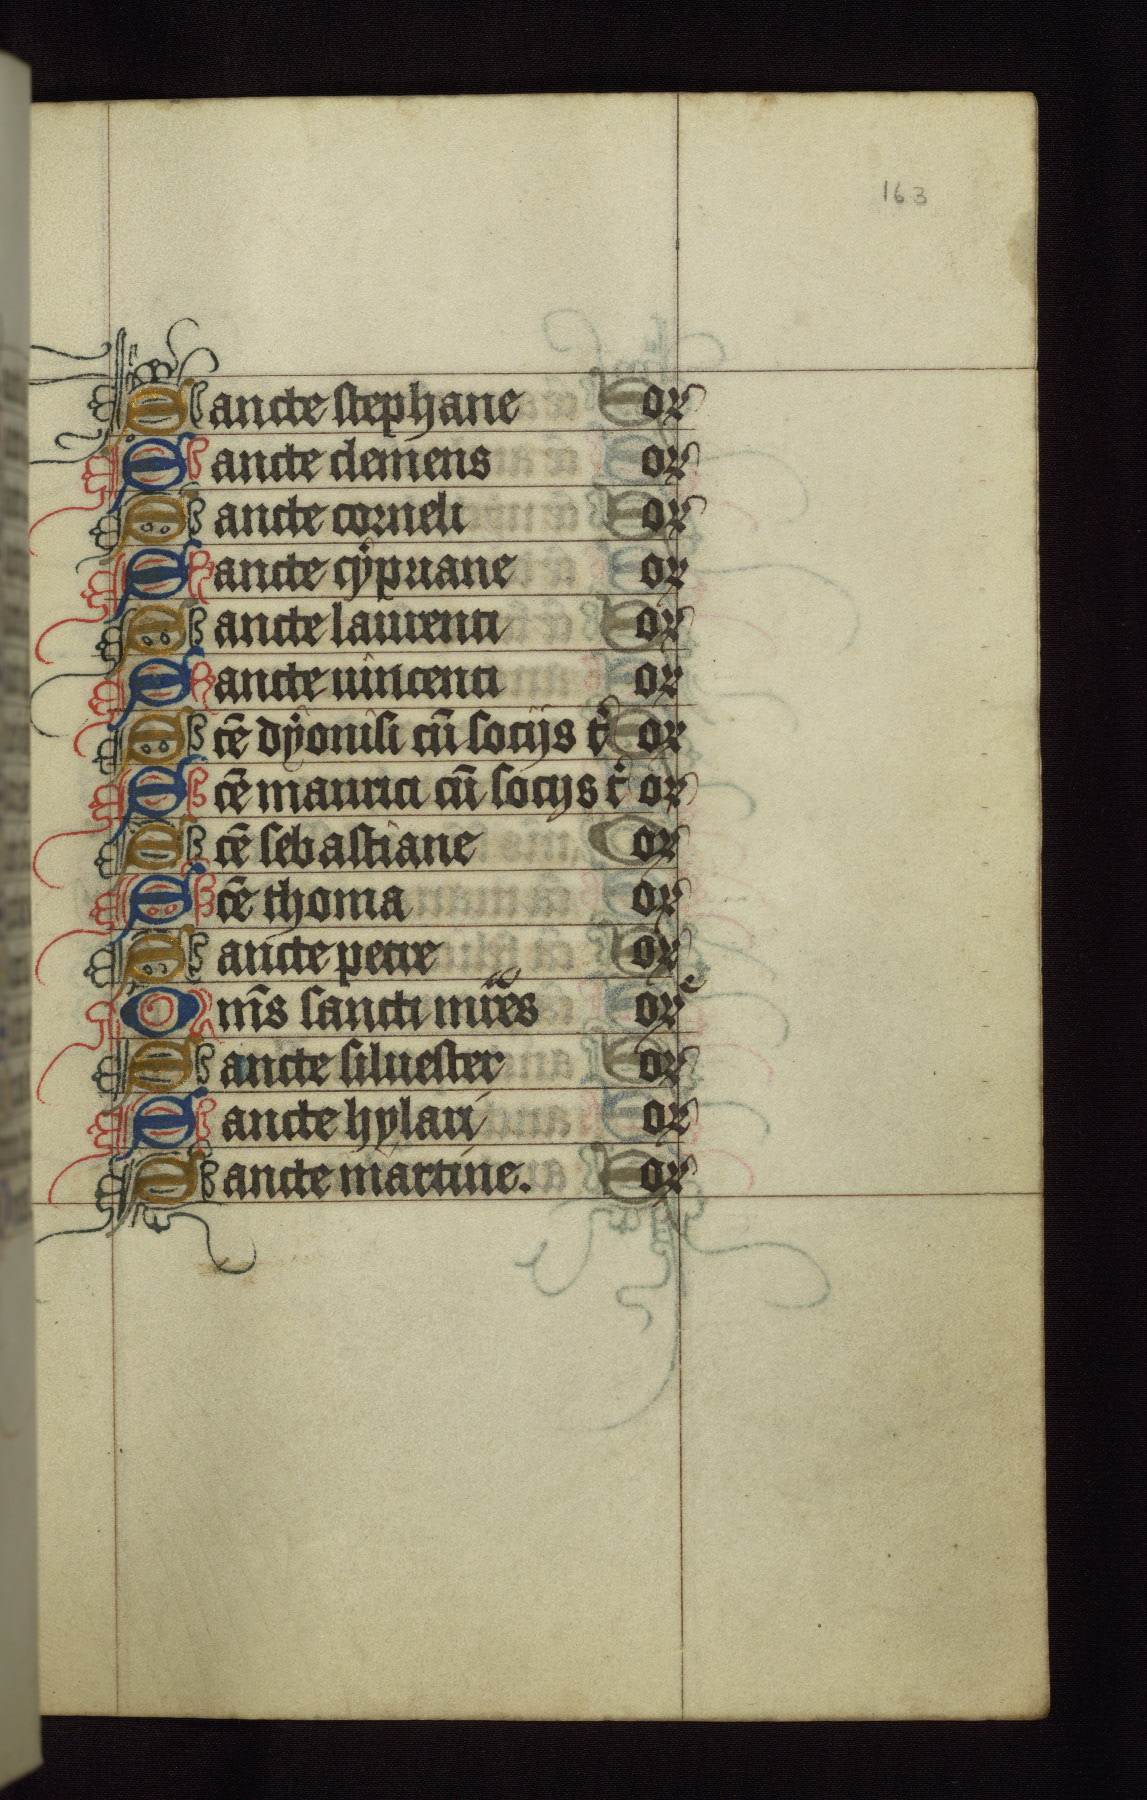 163
Sancte stephane or
Sancte clemens or
Sancte corneli or
Sancte cypriane or
Sancte laurenti or
Sancte uincenti or
Scē dyonisi cū socijs t' or
Scē maurici cū socijs t' or
Scē sebastiane or
Scē thoma or
Sancte petre or
Om̄s sancti mr̄es or
Sancte siluester or
Sancte hylari or
Sancte martine. or